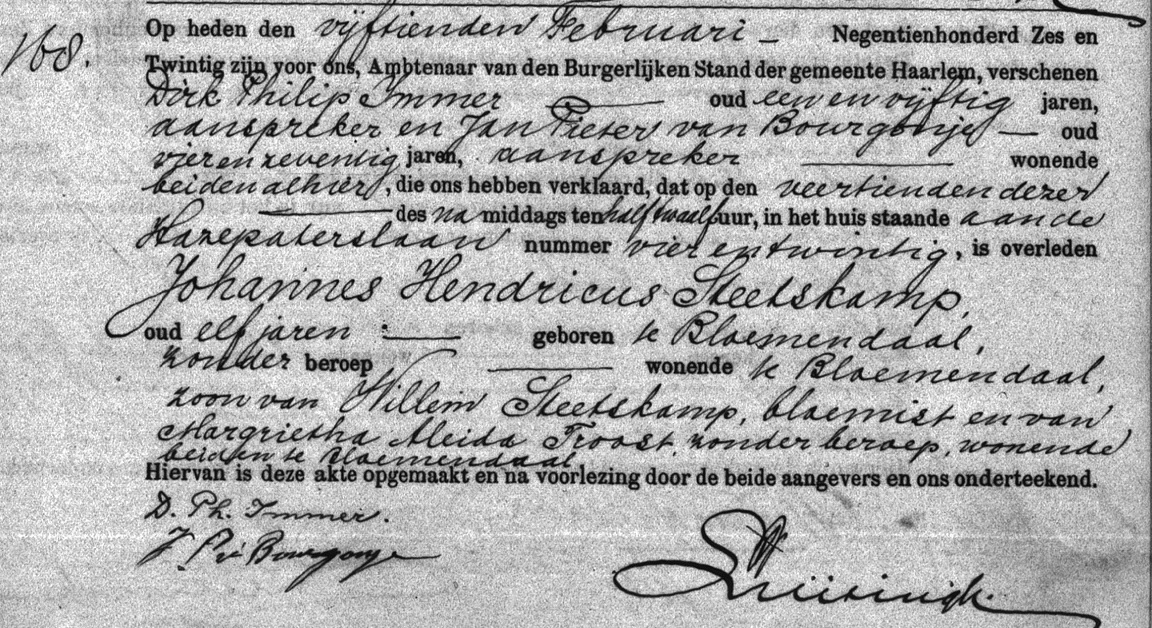 168.
Op heden den vijftienden Februari – Negentienhonderd Zes en
Twintig zijn voor ons, Ambtenaar van den Burgerlijken Stand der gemeente Haarlem, verschenen
Dirk Philip Immer oud een en vijftig jaren,
aanspreker en Jan Pieter van Bourgonje — oud
vier en zeventig jaren, aanspreker wonende
beiden alhier, die ons hebben verklaard, dat op den veertienden dezer
des na middags ten half twaalf uur, in het huis staande aan de
Hazepaterslaan nummer vier en twintig, is overleden
Johannes Hendricus Steetskamp,
oud elf jaren geboren te Bloemendaal,
zonder beroep wonende te Bloemendaal,
zoon van Willem Steetskamp, bloemist en van
Margrietha Aleida Troost, zonder beroep, wonende
beiden te Bloemendaal.
Hiervan is deze akte opgemaakt en na voorlezing door de beide aangevers en ons onderteekend.
D. Ph. Immer.
J. P. v. Bourgonje